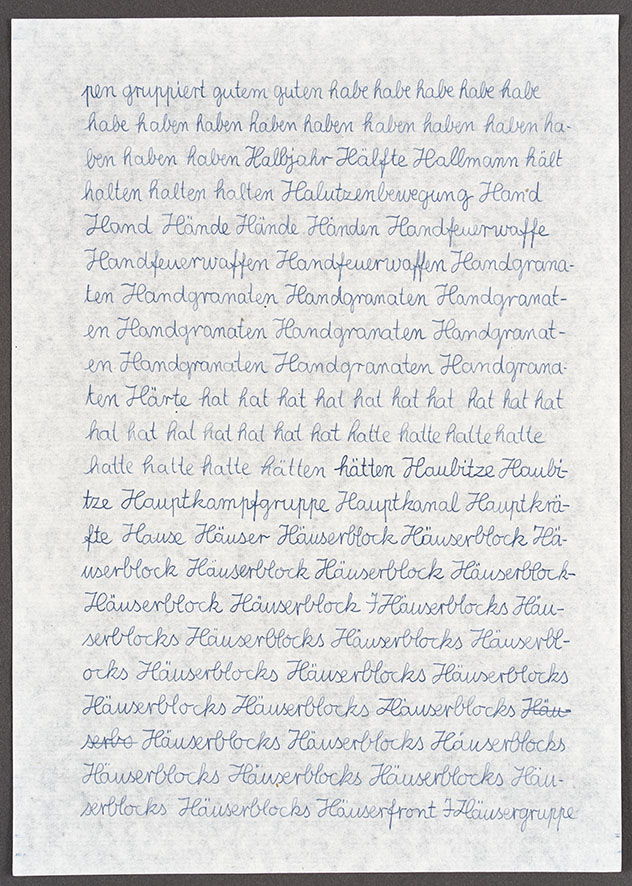 pen gruppiert gutem guten habe habe habe habe habe
habe haben haben haben haben haben haben haben ha-
ben haben haben Halbjahr Hälfte Hallmann hält
halten halten halten Halutzenbewegung Hand
Hand Hände Hände Händen Handfeuerwaffe
Handfeuerwaffen Handfeuerwaffen Handgrana-
ten Handgranaten Handgranaten Handgranat-
en Handgranaten Handgranaten Handgranat-
en Handgranaten Handgranaten Handgrana-
ten Härte hat hat hat hat hat hat hat hat hat hat
hat hat hat hat hat hat hat hatte hatte hatte hatte
hatte hatte hatte hätten hätten Haubitze Haubi-
tze Hauptkampfgruppe Hauptkanal Hauptkrä-
fte Hause Häuser Häuserblock Häuserblock Hä-
userblock Häuserblock Häuserblock Häuserblock
Häuserblock Häuserblock Häuserblocks Häu-
serblocks Häuserblocks Häuserblocks Häuserbl-
ocks Häuserblocks Häuserblocks Häuserblocks
Häuserblocks Häuserblocks Häuserblocks Häu-
serbo Häuserblocks Häuserblocks Häuserblocks
Häuserblocks Häuserblocks Häuserblocks Häu-
serblocks Häuserblocks Häuserfront Häusergruppe